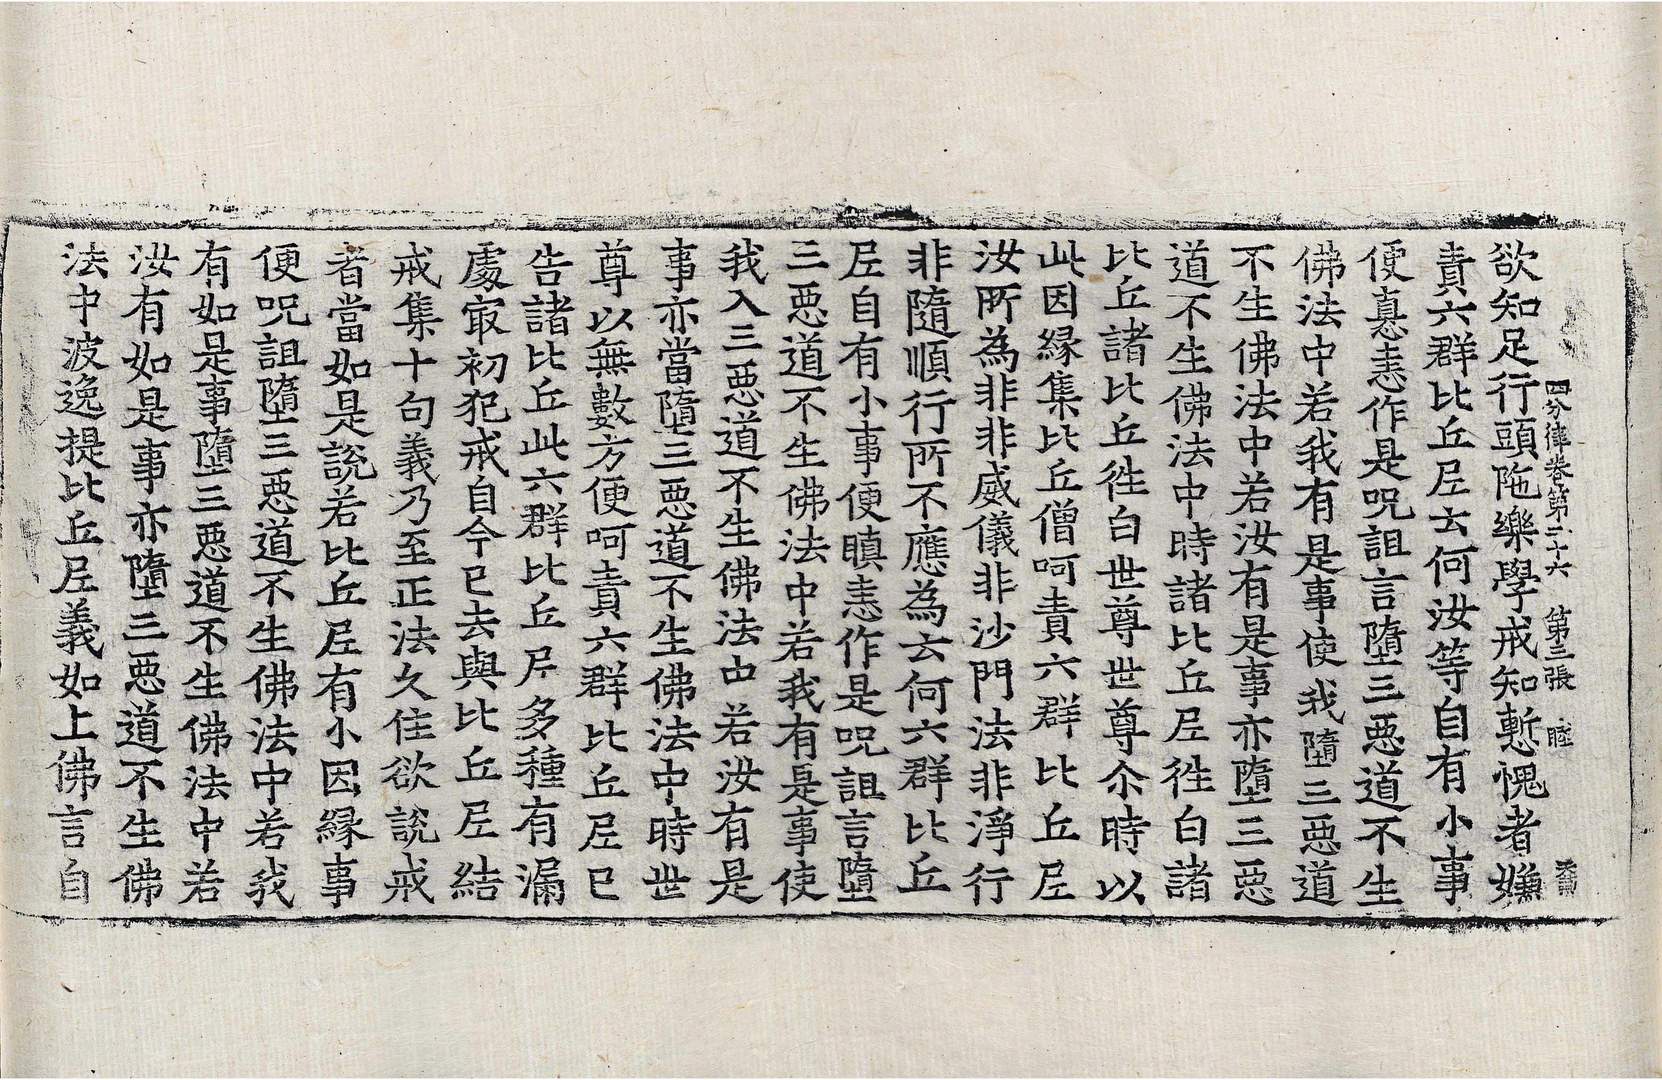 四分律卷第二十六 第三張 睦
欲知足行頭陁樂學戒知慙愧者嫌
責六群比丘尼云何汝等自有小事
便恚作是呪詛言墮三惡道不生
佛法中若我有是事使我墮三惡道
不生佛法中若汝有是事亦墮三惡
道不生佛法中時諸比丘尼徃白諸
比丘諸比丘徃白世尊世尊尒時以
此因縁集比丘僧呵責六群比丘尼
汝所為非非威儀非沙門法非淨行
非隨順行所不應為云何六群比丘
尼自有小事便瞋恚作是呪詛言墮
三惡道不生佛法中若我有是事使
我入三惡道不生佛法中若汝有是
事亦當墮三惡道不生佛法中時世
尊以無數方便呵責六群比丘尼已
告諸比丘此六群比丘尼多種有漏
處㝡初犯戒自今已去與比丘尼結
戒集十句義乃至正法久住欲說戒
者當如是說若比丘尼有小因縁事
便呪詛墮三惡道不生佛法中若我
有如是事墮三惡道不生佛法中若
汝有如是事亦墮三惡道不生佛
法中波逸提比丘尼義如上佛言自